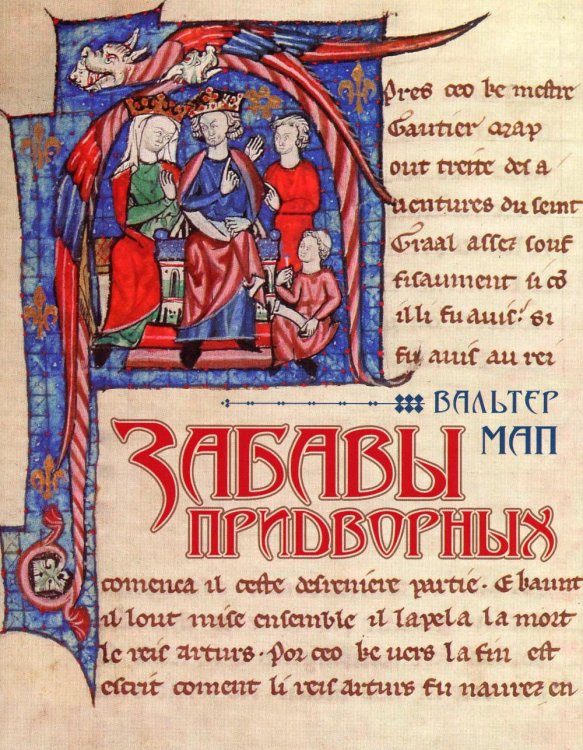 pres ceo ke mestre
Gautier map
out treite des a
uentures du seint
Graal assez souf
fisaument si co
illi fu auis. si
fu auis au rei
ВАЛЬТЕР
МАП
ЗАБАВЫ
ПРИДВОРНЫХ
comenca il ceste desreniere partie. E kaunt
il lout mise ensemble il lapela la mort
le reis arturs. Por ceo ke uers la fin est
escrit coment li reis arturs fu naurez en